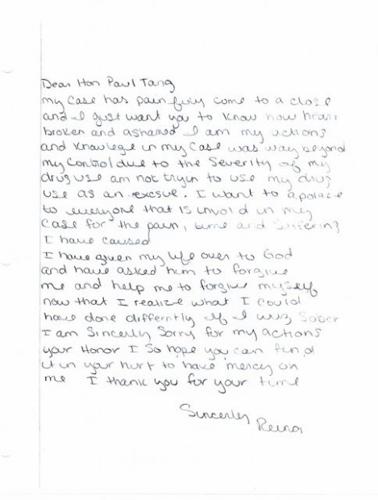 Dear Hon Paul Tang
my case has painfuly come to a close
and I just want you to know how heart
broken and ashamed I am my actions
and knowlege in my case was way beyond
my control due to the severity of my
drug use am not tryin to use my drug
use as an excsue. I want to apolaze
to everyone that is invold in my
case for the pain, and suffering
I have caused
I have given my life over to God
and have asked him to forgive
me and help me to forgive myself
now that I realize what I could
have done differntly if I was sober
I am sincerly sorry for my actions
your Honor I so hope you can find
it in your hurt to have mercy on
me I thank you for your time
Sincerley
Reina